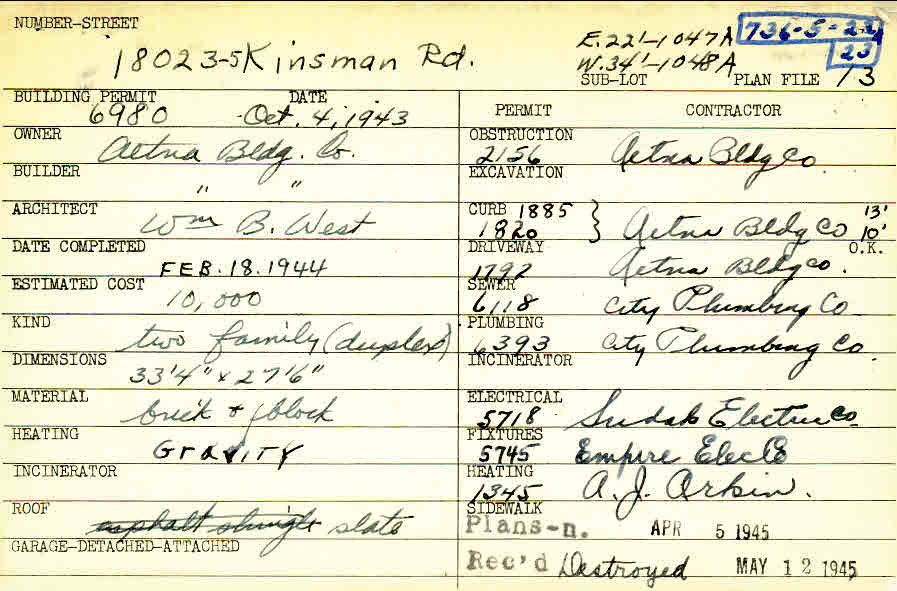 NUMBER-STREET
18023-5 Kinsman Rd.
E.22'-1047A
W.34'-1048A
736-5-22
23
SUB-LOT PLAN FILE 13
BUILDING PERMIT DATE
6980 Oct. 4, 1943
OWNER
Aetna Bldg. Co.
BUILDER
" "
ARCHITECT
Wm B. West
DATE COMPLETED
FEB. 18. 1944
ESTIMATED COST
10,000
KIND
two family (duplex)
DIMENSIONS
33'4" x 27'6"
MATERIAL
brick & block
HEATING
Gravity
INCINERATOR
ROOF
asphalt shingle slate
GARAGE-DETACHED-ATTACHED
PERMIT CONTRACTOR
OBSTRUCTION
2156 Aetna Bldg Co
EXCAVATION
CURB 1885
1820 } Aetna Bldg Co 13'
10'
DRIVEWAY O.K.
1792 Aetna Bldg Co.
SEWER
6118 City Plumbing Co
PLUMBING
6393 City Plumbing Co.
INCINERATOR
ELECTRICAL
5718 Electric Co.
FIXTURES
5745 Empire Elec Co
HEATING
1345 A. J. Orkin.
SIDEWALK
Plans-n. APR 5 1945
Rec'd Destroyed MAY 12 1945